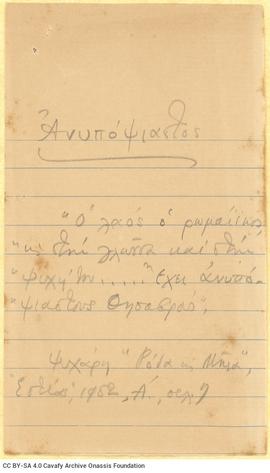 Ἀνυπόψιαστος
"Ὁ λαὸς ὁ ρωμαίικος,
"κι στὴ γλῶσσα καὶ στὴν
"ψυχή του..... "ἔχει ἀνυπό-
"ψιαστους θησαυρούς",
Ψυχάρη "Ρόδα κι Μῆλα",
Ἀ., σελ. 9
CC BY-SA 4.0 Cavafy Archive Onassis Foundation